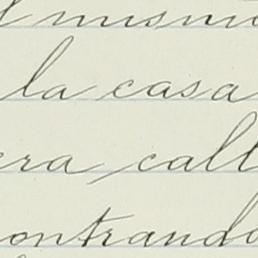 l mismo
la casa
era call
ontrando